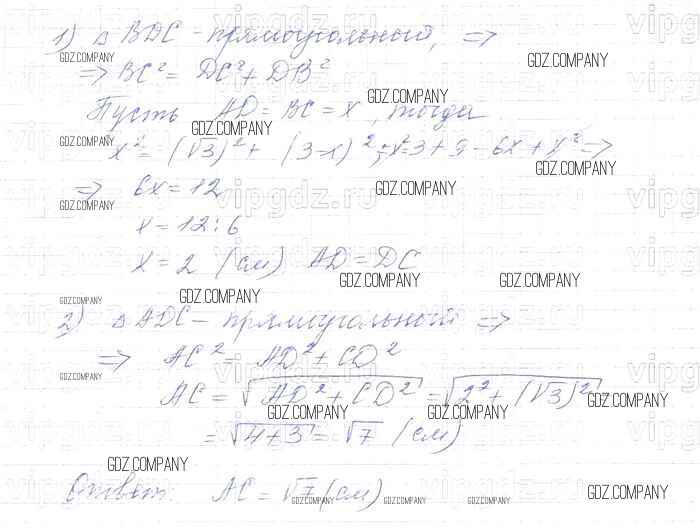 1) △ BDC - прямоугольный, ⇒
⇒ BC² = DC² + DB²
Пусть AD = BC = x, тогда
x² = (√3)² + (3-x)²; x² = 3 + 9 - 6x + x² ⇒
⇒ 6x = 12
x = 12 : 6
x = 2 (см) AD = DC
2) △ ADC - прямоугольный ⇒
⇒ AC² = AD² + CD²
AC = √AD² + CD² = √2² + (√3)² =
= √4+3 = √7 (см)
Ответ: AC = √7 (см)
GDZ.COMPANY
vipgdz.ru